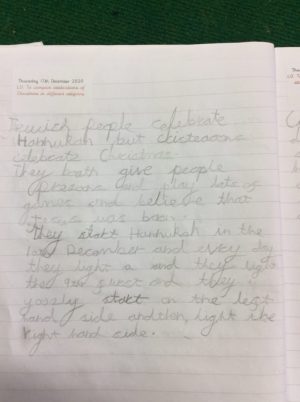 Thursday 17th December 2020
LO: To compare celebrations of
Christmas in different religions.
Jewish people celebrate
Hannukah but
celebrate Christmas.
They both give people
and play lots of
games and believe that
Jesus was born.
They start Hannukah in the
December and every day
they light a and they light
the 9th and they
start on the left
hand side and then light the
right hand side.